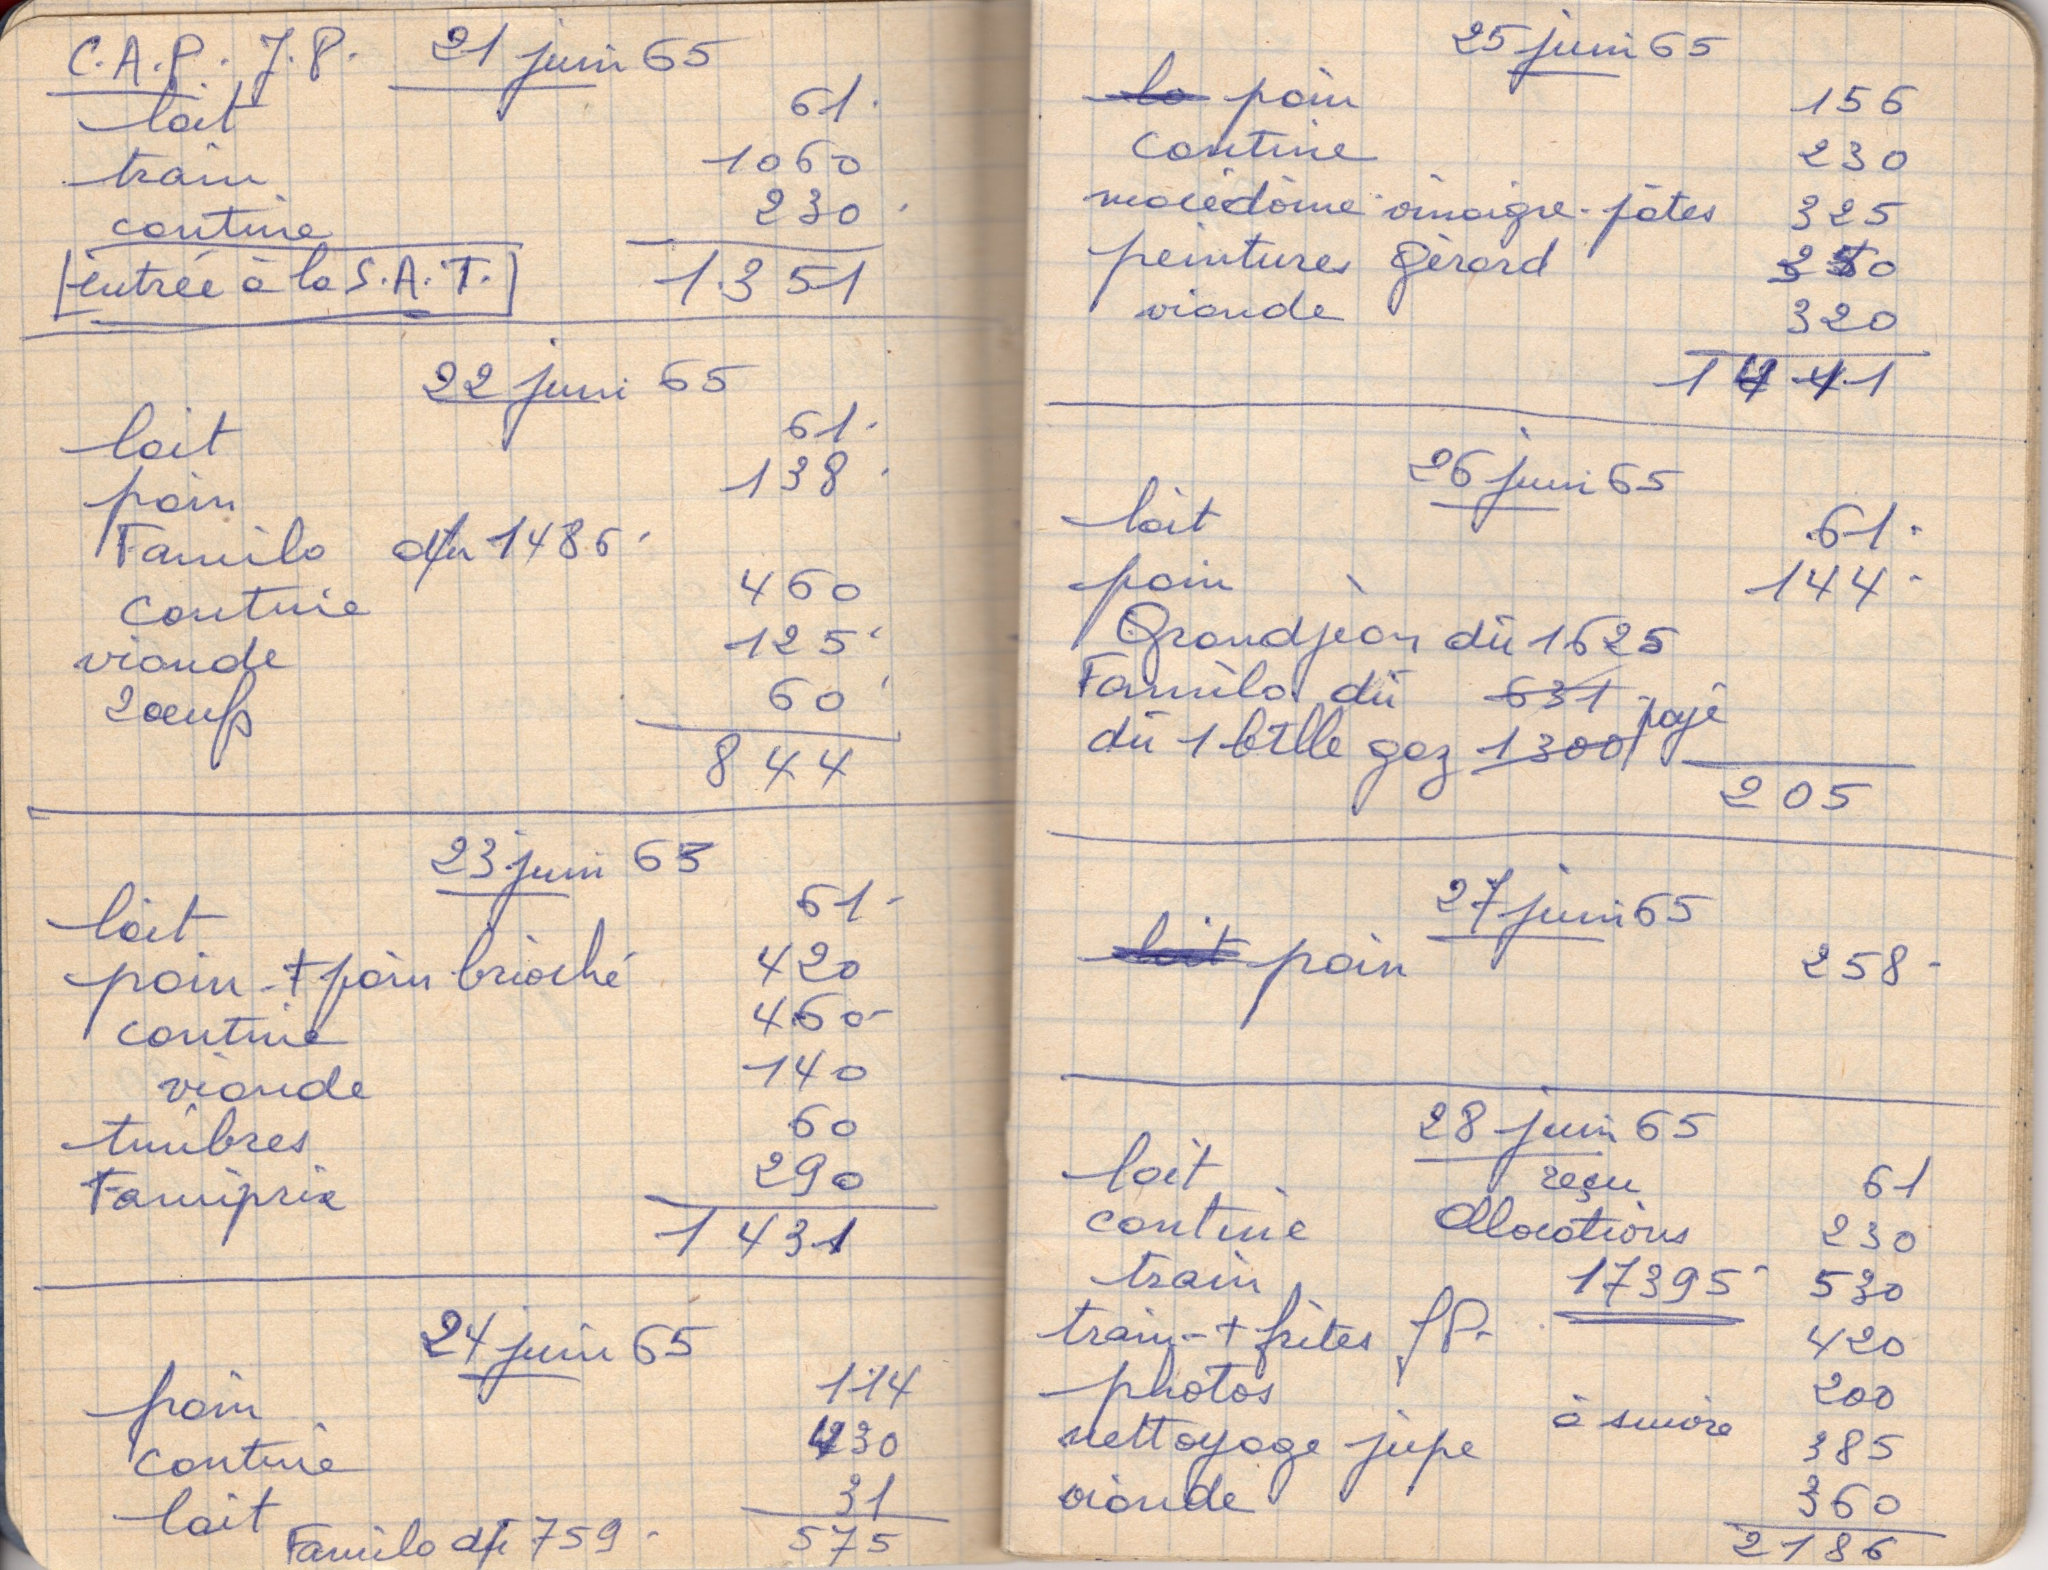 C.A.P. J.P. 21 juin 65
lait 61.
train 1060
cantine 230.
[entrée à la S.A.T.] 1351
22 juin 65
lait 61.
pain 138.
Familo dû 1486.
cantine 460
viande 125
2 œufs 60
844
23 juin 65
lait 61-
pain + pain brioché 420
cantine 460-
viande 140
timbres 60
Famiprix 290
1431
24 juin 65
pain 114
cantine 430
lait 31
Familo dû 759. 575
25 juin 65
pain 156
cantine 230
macédoine vinaigre. pâtes 325
peintures Gérard
viande 320
1441
26 juin 65
lait 61.
pain 144.
Grandjean dû 1625
Familo dû 631 payé
dû 1 btlle gaz 1300
205
27 juin 65
lait pain 258-
28 juin 65
lait reçu 61
cantine Allocations 230
train 17395 530
train + frites JP. 420
photos 200
nettoyage jupe à suivre 385
viande 360
2186